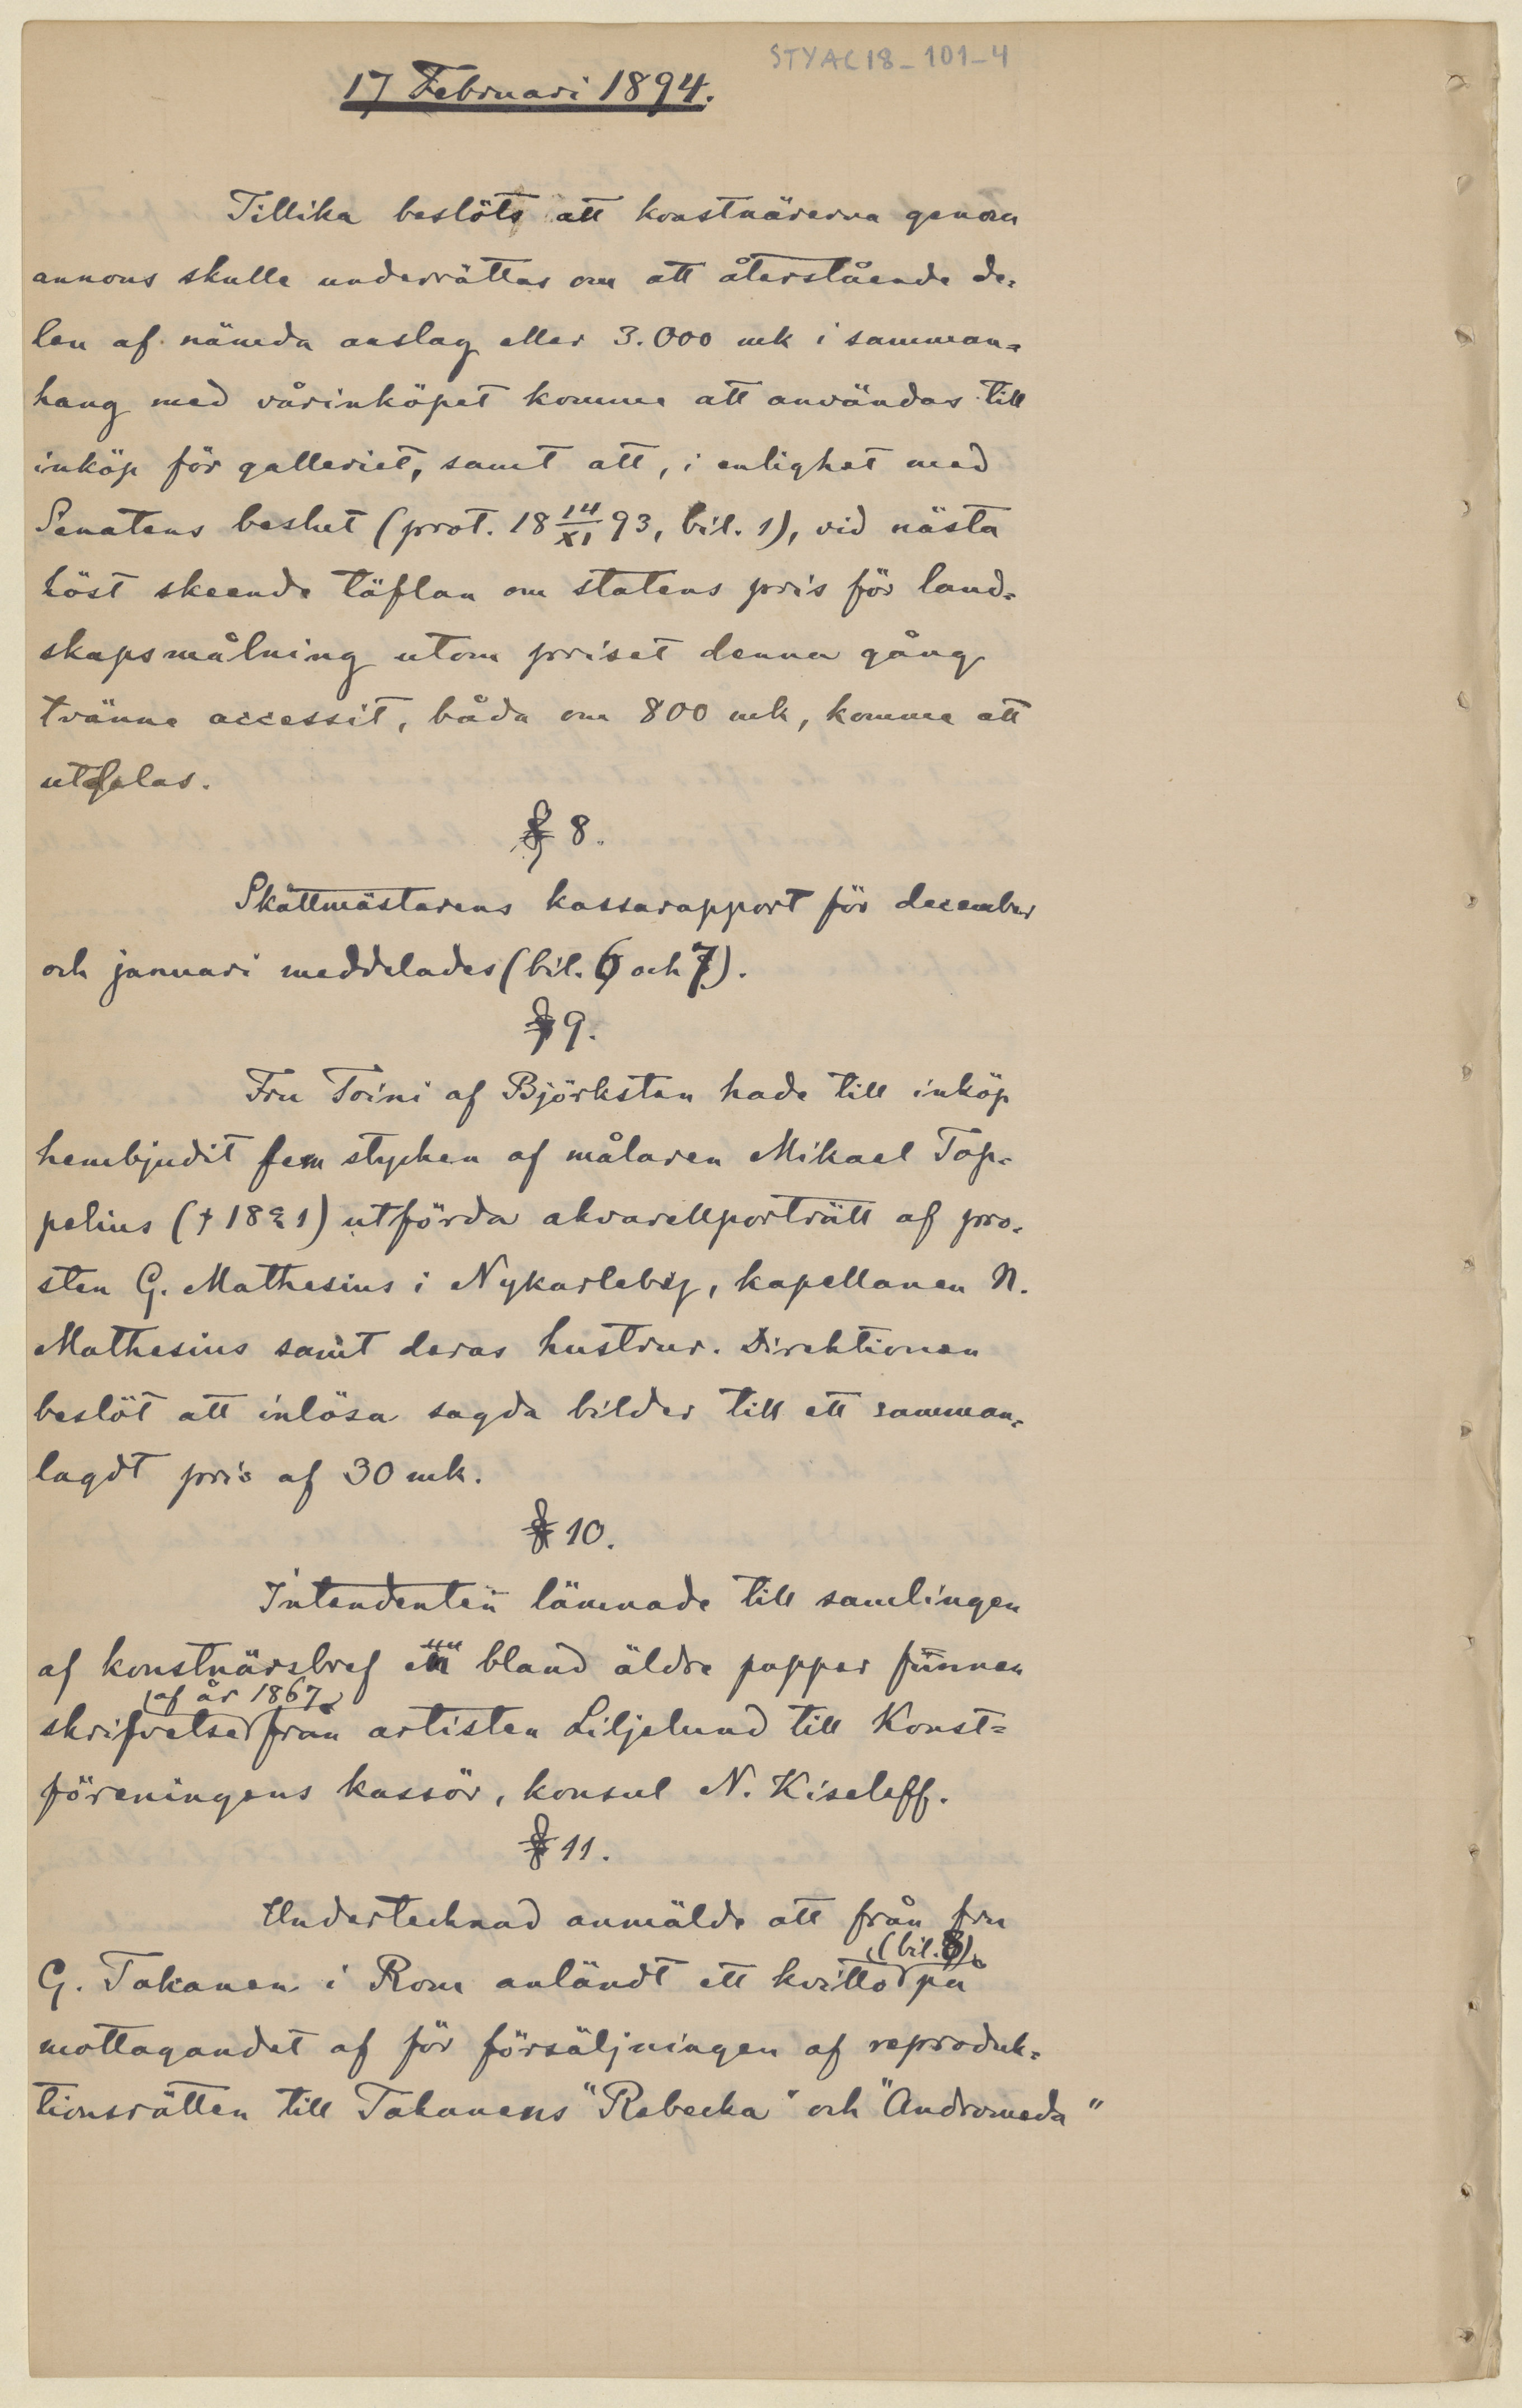 STYAC18_101_4
17 Februari 1894.
Tillika beslöts att konstnärerna genom
annons skulle underrättas om att återstående de-
len af nämda anslag eller 3.000 mk i samman-
hang med vårinköpet komme att användas till
inköp för galleriet, samt att, i enlighet med
Senatens beslut (prot. 18 14/XI 93, bil. 1), vid nästa
höst skeende täflan om statens pris för land-
skapsmålning utom priset denna gång
tvänne accessit, båda om 800 mk, komme att
utdelas.
§ 8.
Skattmästarens kassarapport för december
och januari meddelades (bil. 6 och 7).
§ 9.
Fru Toini af Björksten hade till inköp
hembjudit fem stycken af målaren Mikael Top-
pelius († 1821) utförda akvarellporträtt af pro-
sten G. Mathesius i Nykarleby, kapellanen N.
Mathesius samt deras hustrur. Direktionen
beslöt att inlösa sagda bilder till ett samman-
lagdt pris af 30 mk.
§ 10.
Intendenten lämnade till samlingen
af konstnärsbref en bland äldre papper funnen
skrifvelse (af år 1867) från artisten Liljelund till Konst-
föreningens kassör, konsul N. Kiseleff.
§ 11.
Undertecknad anmälde att från fru
G. Takanen i Rom anländt ett kvitto (bil. 8) på
mottagandet af för försäljningen af reproduk-
tionsrätten till Takanens "Rebecka" och "Andromeda"